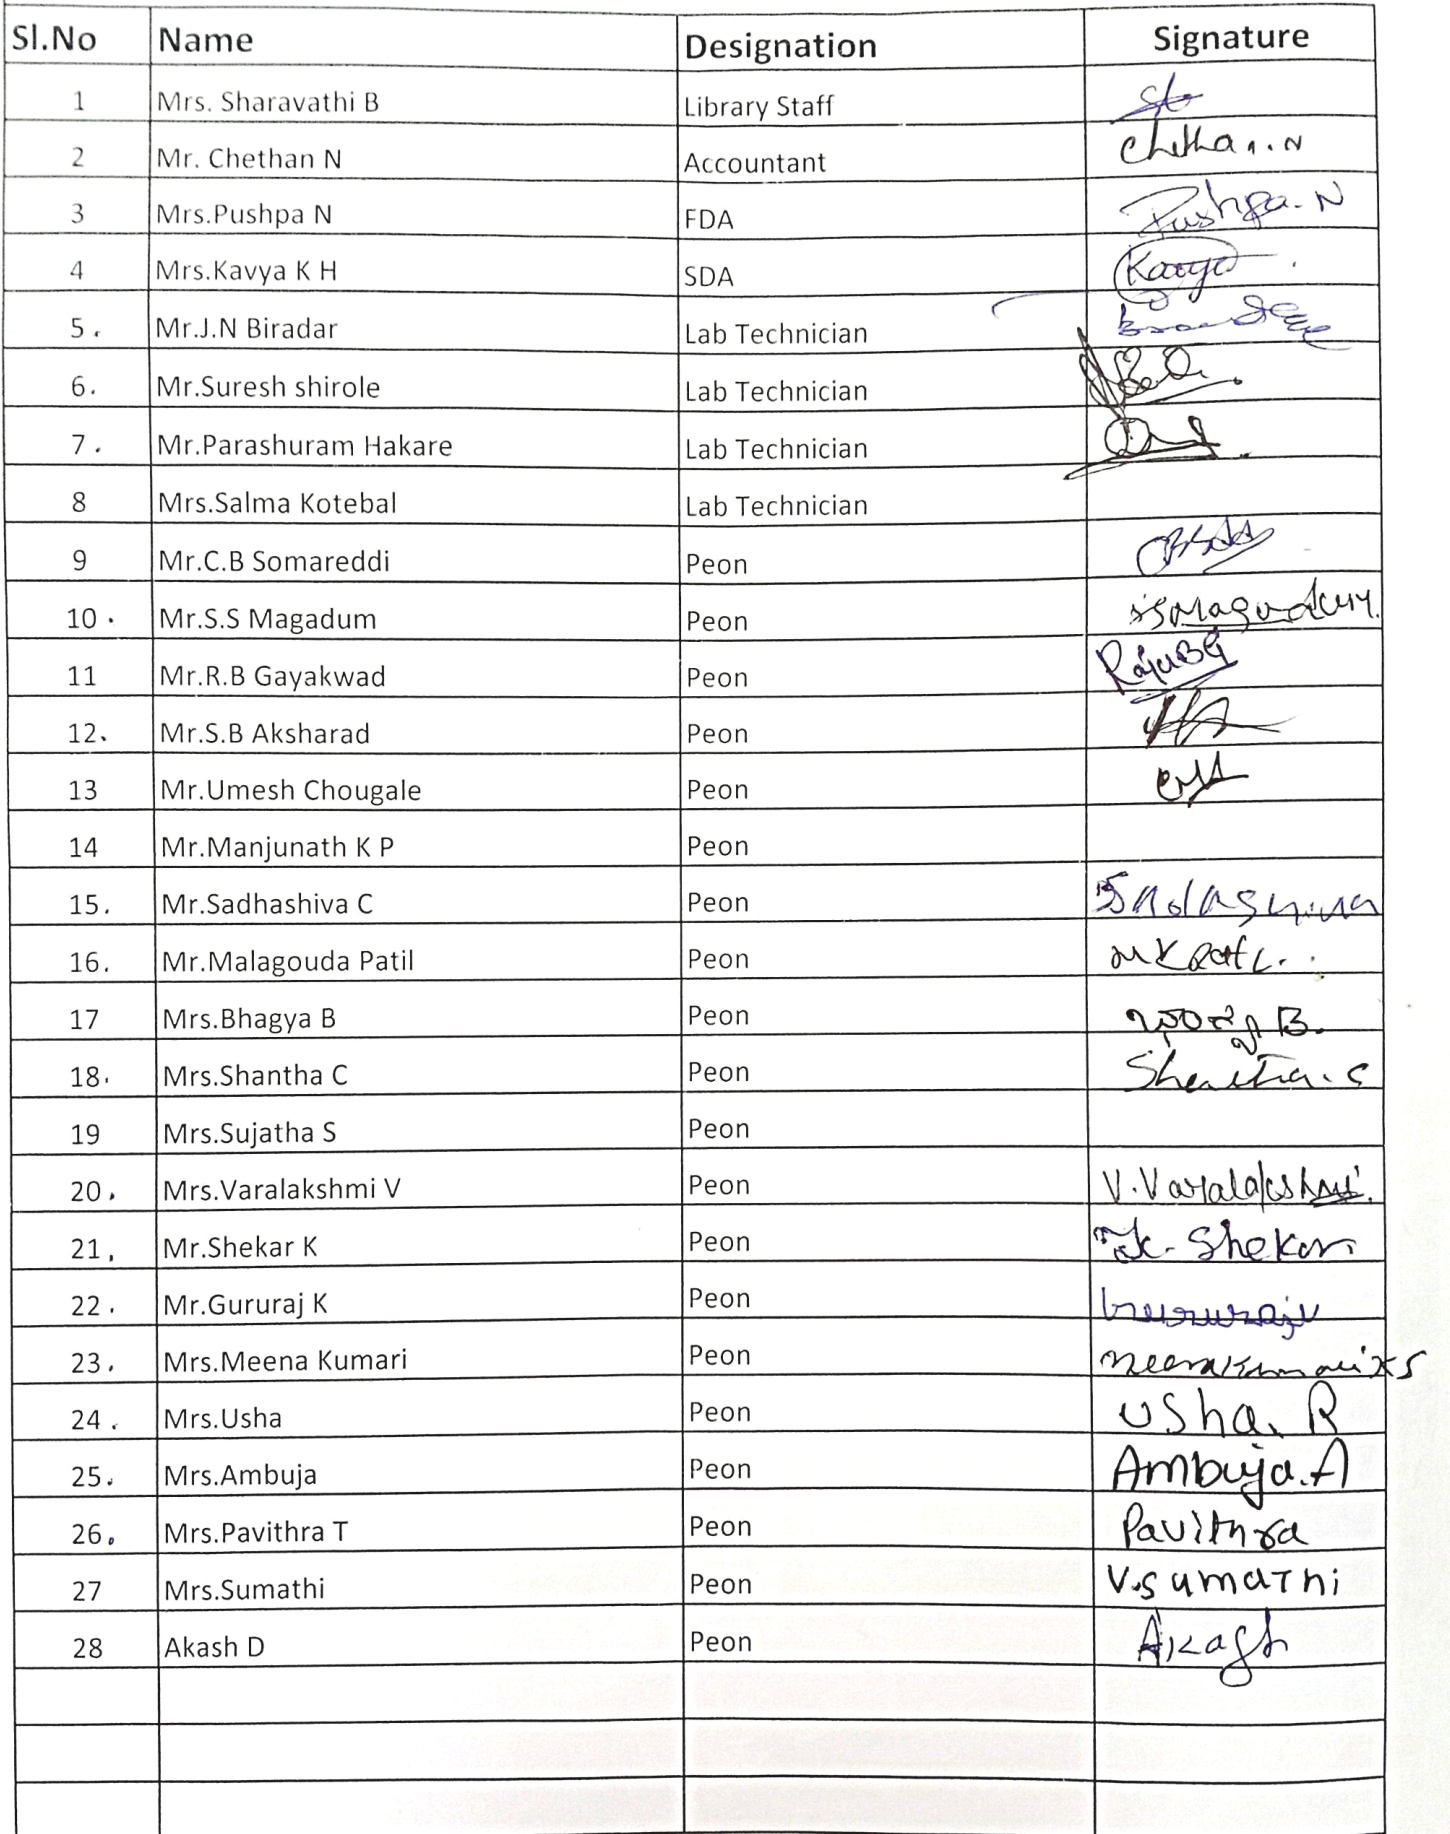 Sl.No Name Designation Signature
1 Mrs. Sharavathi B Library Staff
2 Mr. Chethan N Accountant Chethan.N
3 Mrs.Pushpa N FDA Pushpa.N
4 Mrs.Kavya K H SDA Kavya
5. Mr.J.N Biradar Lab Technician
6. Mr.Suresh shirole Lab Technician
7. Mr.Parashuram Hakare Lab Technician
8 Mrs.Salma Kotebal Lab Technician
9 Mr.C.B Somareddi Peon
10. Mr.S.S Magadum Peon SSMagadum.
11 Mr.R.B Gayakwad Peon RajuBG
12. Mr.S.B Aksharad Peon
13 Mr.Umesh Chougale Peon
14 Mr.Manjunath K P Peon
15. Mr.Sadhashiva C Peon Sadashiva
16. Mr.Malagouda Patil Peon
17 Mrs.Bhagya B Peon B.
18. Mrs.Shantha C Peon Shantha.C
19 Mrs.Sujatha S Peon
20. Mrs.Varalakshmi V Peon V.Varalakshmi.
21. Mr.Shekar K Peon K. Shekar
22. Mr.Gururaj K Peon Gururaju
23. Mrs.Meena Kumari Peon MeenaKumari KS
24. Mrs.Usha Peon Usha. R
25. Mrs.Ambuja Peon Ambuja.A
26. Mrs.Pavithra T Peon Pavithra
27 Mrs.Sumathi Peon V.Sumathi
28 Akash D Peon Akash